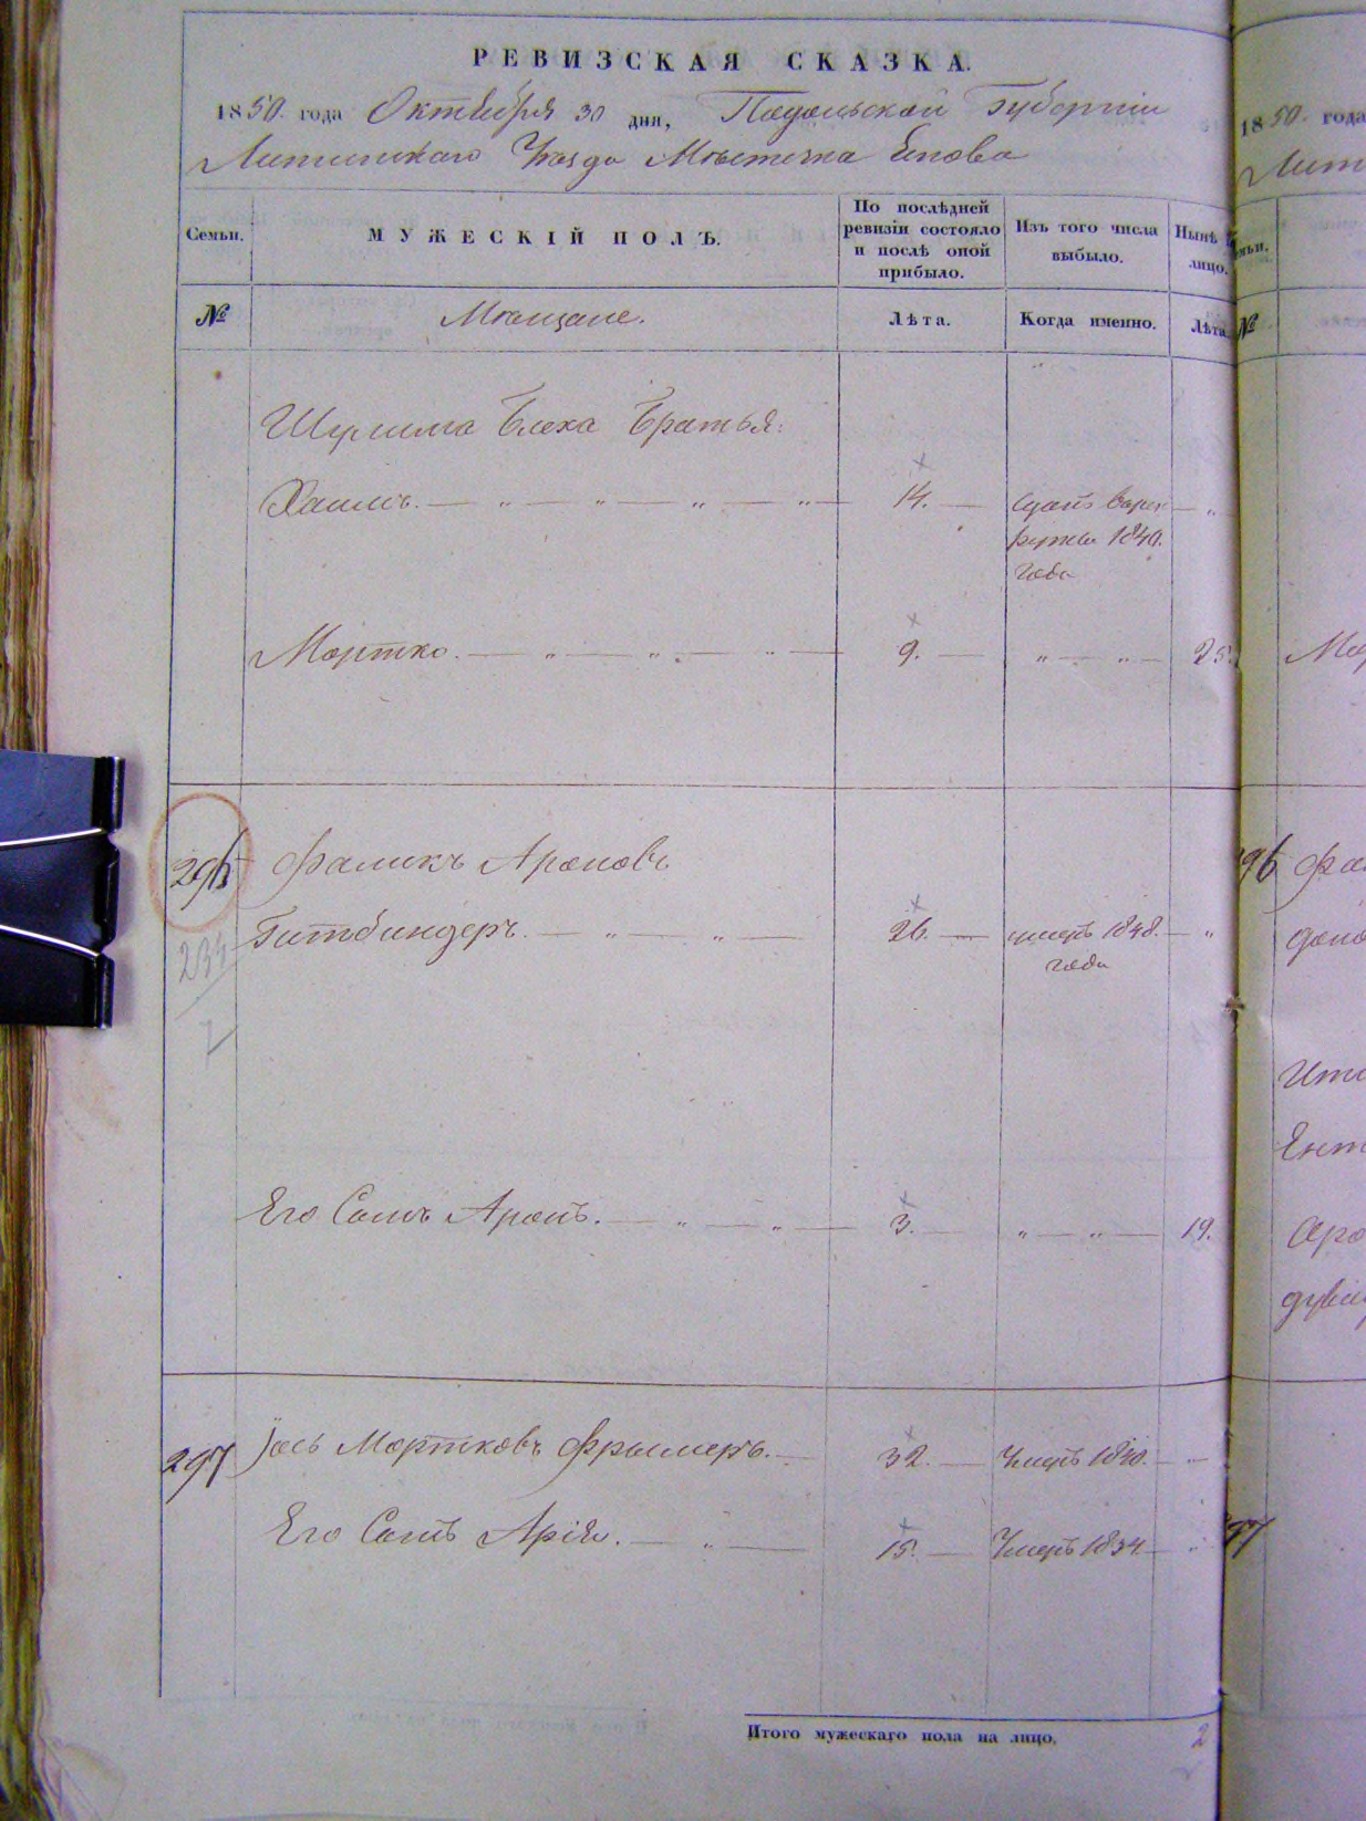 РЕВИЗСКАЯ СКАЗКА.
1850. года Октября 30 дня, Подольской Губерніи
Литинскаго Уѣзда Мѣстечка
Семьи.
МУЖЕСКІЙ ПОЛЪ.
По послѣдней ревизіи состояло и послѣ оной прибыло.
Изъ того числа выбыло.
Нынѣ
лицо.
№
Мѣщане.
Лѣта.
Когда именно.
Лѣта
Шулима Братья:
Хаимъ. — „ — „ — „ — „ — 14. — 1840. года — „
Мортко. — „ — „ — „ — 9. — „ — „ — 25.
296 Фаликъ Ароновъ
Гитбиндеръ. — „ — „ — 26. — умеръ 1848. года — „
Его Сынъ Аронъ. — „ — „ — 3. — „ — „ — 19.
297 Іось Мортковъ Фрымеръ. — 32. — Умеръ 1840. — „
Его Сынъ Арія. — „ — 15. — Умеръ 1834 — „
Итого мужескаго пола на лицо. 2
1850. года
Лит
№
Мор
96 Фа
Ент
97